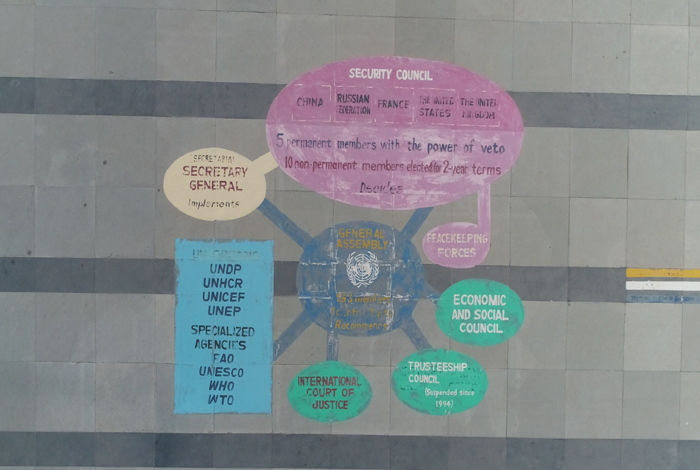 SECURITY COUNCIL
CHINA
RUSSIAN
FEDERATION
FRANCE
THE UNITED
STATES
THE UNITED
KINGDOM
5 permanent members with the power of veto
10 non-permanent members elected for 2-year terms
Decides
SECRETARIAT
SECRETARY
GENERAL
Implements
GENERAL
ASSEMBLY
Recommends
PEACEKEEPING
FORCES
UNDP
UNHCR
UNICEF
UNEP
SPECIALIZED
AGENCIES
FAO
UNESCO
WHO
WTO
ECONOMIC
AND SOCIAL
COUNCIL
TRUSTEESHIP
COUNCIL
(Suspended since
1994)
INTERNATIONAL
COURT OF
JUSTICE